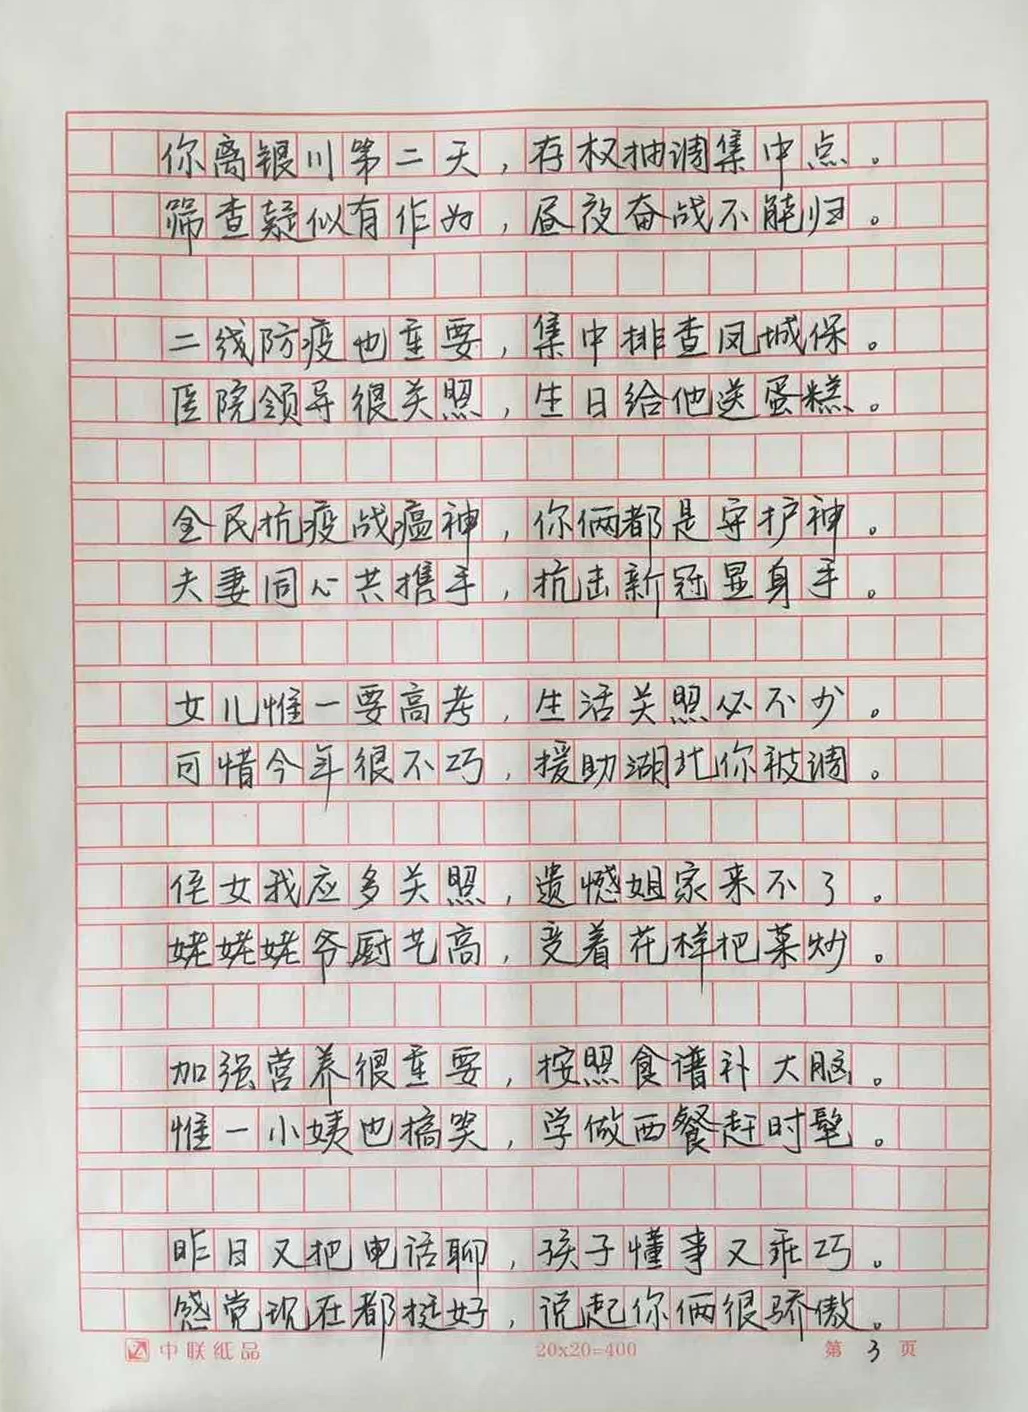 你离银川第二天，存权抽调集中点。
筛查疑似有作为，昼夜奋战不能归。
二线防疫也重要，集中排查凤城保。
医院领导很关照，生日给他送蛋糕。
全民抗疫战瘟神，你俩都是守护神。
夫妻同心共携手，抗击新冠显身手。
女儿惟一要高考，生活关照必不少。
可惜今年很不巧，援助湖北你被调。
侄女我应多关照，遗憾姐家来不了。
姥姥姥爷厨艺高，变着花样把菜炒。
加强营养很重要，按照食谱补大脑。
惟一小姨也搞笑，学做西餐赶时髦。
昨日又把电话聊，孩子懂事又乖巧。
感觉现在都挺好，说起你俩很骄傲。
中联纸品 20x20=400 第 3 页